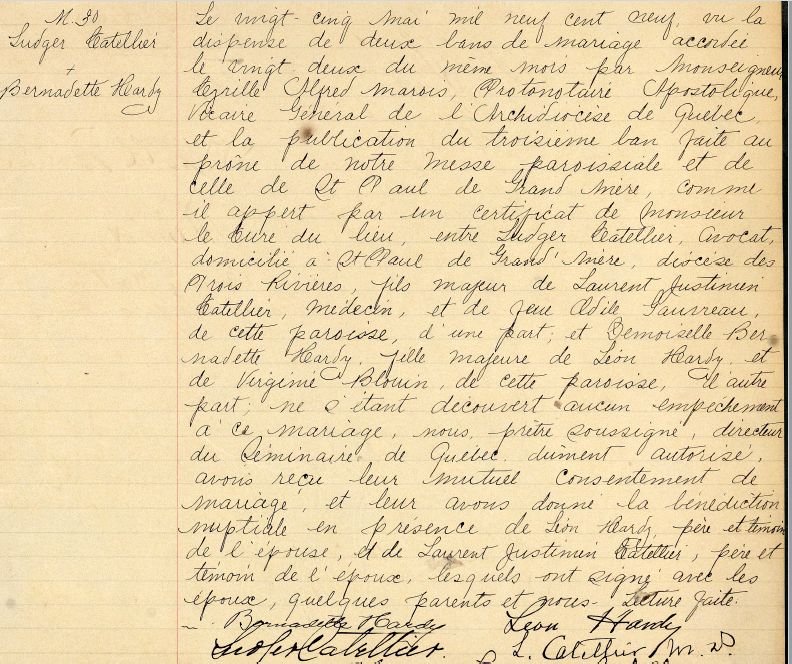 M. 30
Ludger Catellier
+
Bernadette Hardy
Le vingt-cinq Mai mil neuf cent neuf, vu la
dispense de deux bans de mariage accordée
le vingt deux du même mois par Monseigneur
Cyrille Alfred Marois, Protonotaire Apostolique,
Vicaire Général de l'Archidiocèse de Québec,
et la publication du troisième ban faite au
prône de notre Messe paroissiale et de
celle de St Paul de Grand Mère, comme
il appert par un certificat de Monsieur
le Curé du lieu, entre Ludger Catellier, Avocat,
domicilié à St Paul de Grand' Mère, diocèse des
Trois Rivières, fils majeur de Laurent Justinien
Catellier, Médecin, et de feue Odile Gauvreau,
de cette paroisse, d'une part; et Demoiselle Ber
nadette Hardy, fille majeure de Léon Hardy, et
de Virginie Blouin, de cette paroisse, d'autre
part; ne s'étant découvert aucun empêchement
à ce mariage, nous, prêtre soussigné, directeur
du Séminaire de Québec, dûment autorisé,
avons reçu leur mutuel consentement de
mariage, et leur avons donné la bénédiction
nuptiale en présence de Léon Hardy, père et témoin
de l'épouse, et de Laurent Justinien Catellier, père et
témoin de l'époux, lesquels ont signé avec les
époux, quelques parents et nous. Lecture faite.
Bernadette Hardy Léon Hardy
Ludger Catellier. L. Catellier M. D.